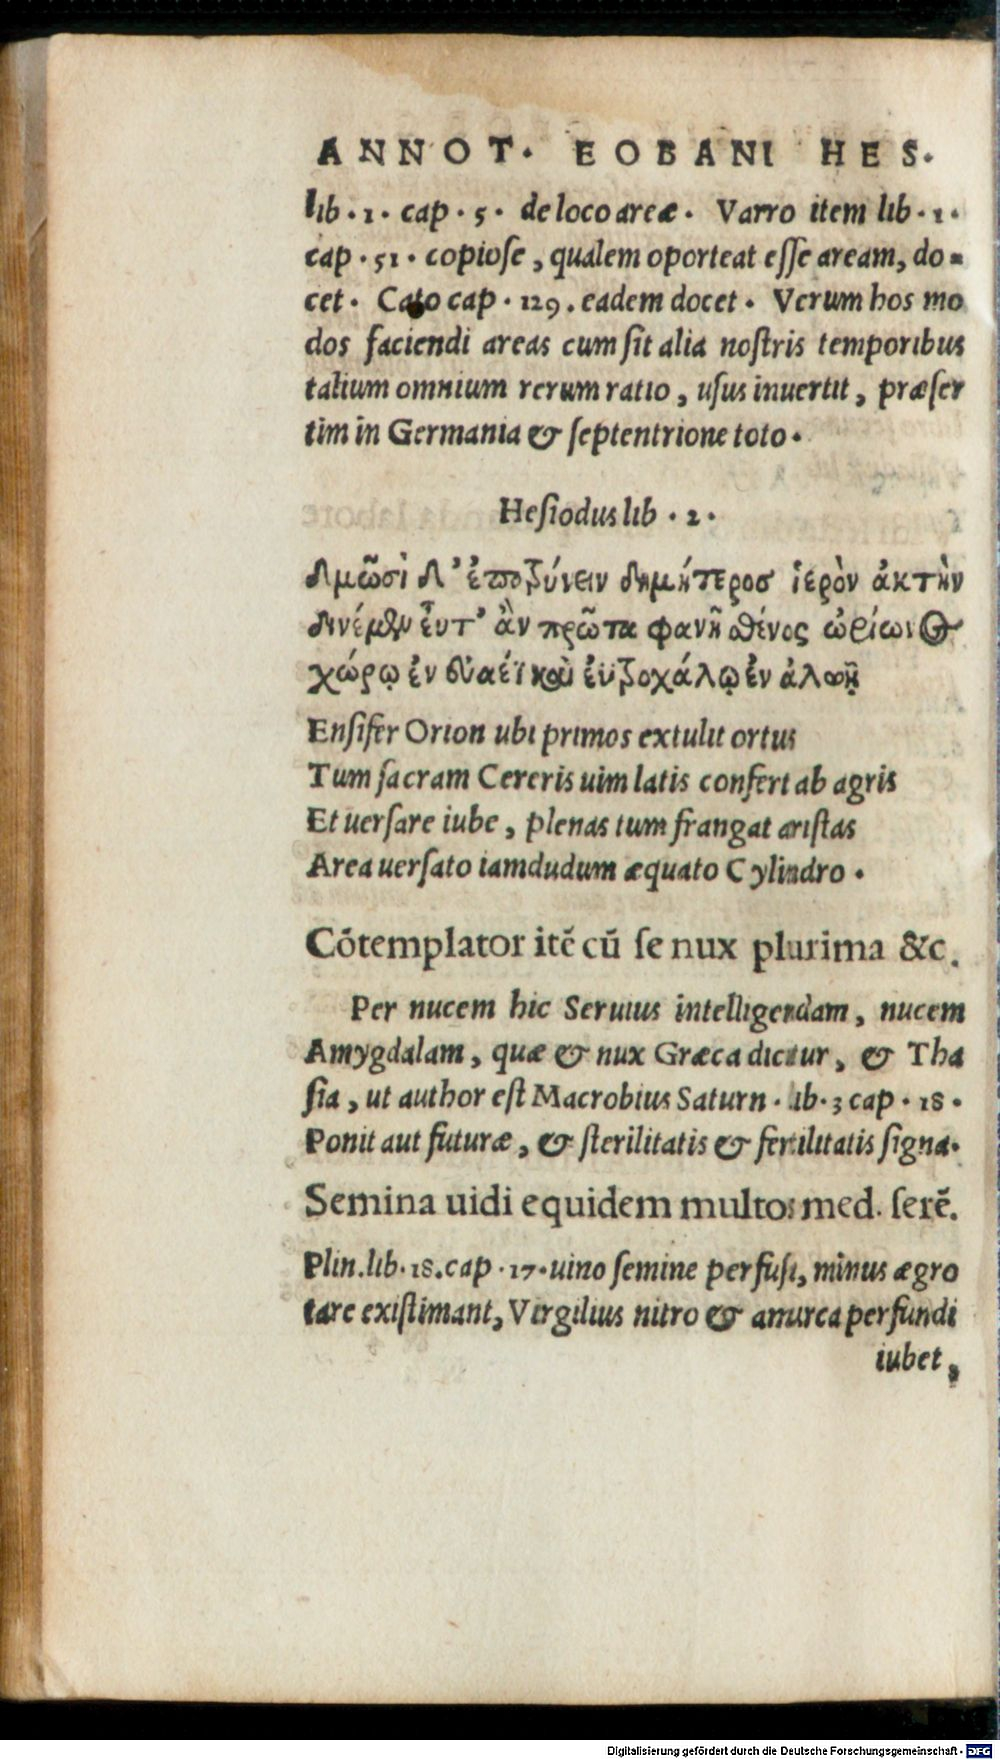 ANNOT. EOBANI HES.
lib . 1 . cap . 5 . de loco areæ . Varro item lib . 1 .
cap . 51 . copioſe , qualem oporteat eſſe aream, do-
cet . Cato cap . 129 . eadem docet . Verum hos mo
dos faciendi areas cum ſit alia noſtris temporibus
talium omnium rerum ratio , uſus inuertit , præſer
tim in Germania & ſeptentrione toto .
Heſiodus lib . 2 .
Δμωσὶ δ' ἐποτρύνειν δημήτεροσ ἱερὸν ἀκτὴν
δινέμεν εὖτ' ἂν πρῶτα φανῆ σθένος ὠρίωνος
χώρῳ ἐν εὐαέϊ καὶ ἐϋτροχάλῳ ἐν ἀλωῇ
Enſifer Orion ubi primos extulit ortus
Tum ſacram Cereris uim latis confert ab agris
Et uerſare iube , plenas tum frangat ariſtas
Area uerſato iamdudum æquato Cylindro .
Cōtemplator itē cū ſe nux plurima &c.
Per nucem hic Seruius intelligendam , nucem
Amygdalam , quæ & nux Græca dicitur , & Tha
ſia , ut author eſt Macrobius Saturn . lib. 3 cap . 18 .
Ponit aut futuræ , & ſterilitatis & fertilitatis ſigna.
Semina uidi equidem multos med. ſerē.
Plin. lib. 18. cap . 17. uino ſemine perfuſi, minus ægro
tare exiſtimant, Virgilius nitro & amurca perfundi
iubet,
Digitalisierung gefördert durch die Deutsche Forschungsgemeinschaft - DFG